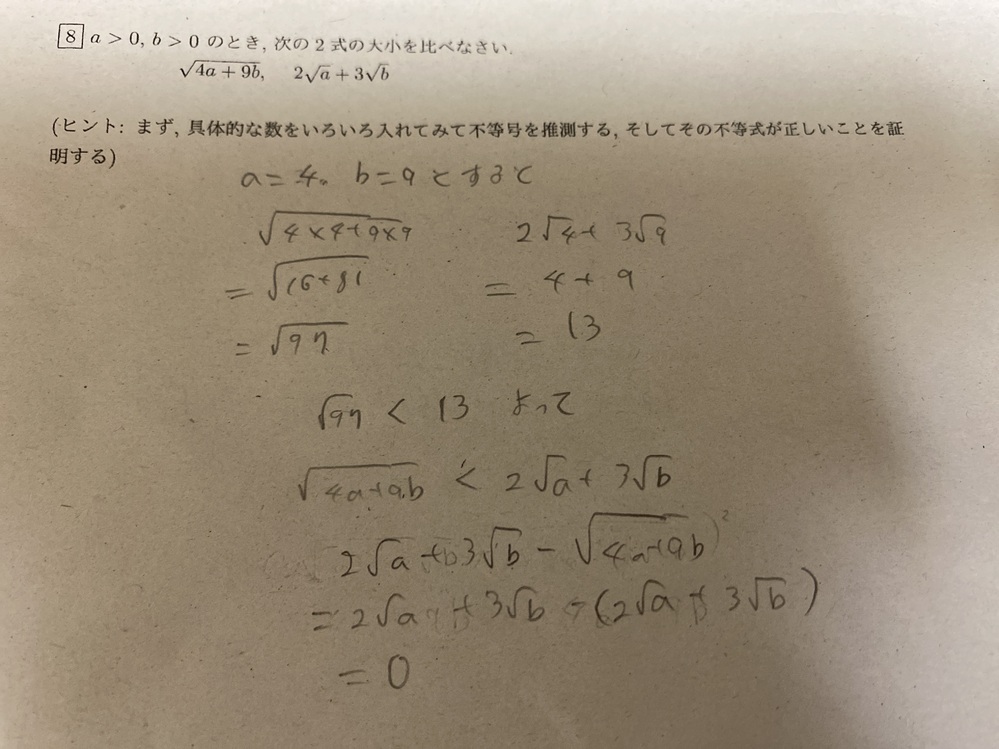 8 a > 0, b > 0 のとき, 次の 2 式の大小を比べなさい.
√(4a + 9b), 2√a + 3√b
(ヒント: まず, 具体的な数をいろいろ入れてみて不等号を推測する, そしてその不等式が正しいことを証
明する)
a = 4。 b = 9 とすると
√(4×4+9×9) 2√4 + 3√9
= √(16+81) = 4 + 9
= √97 = 13
√97 < 13 よって
√(4a+9b) < 2√a + 3√b
2√a + 3√b - √(4a+9b)²
= 2√a + 3√b - (2√a + 3√b)
= 0